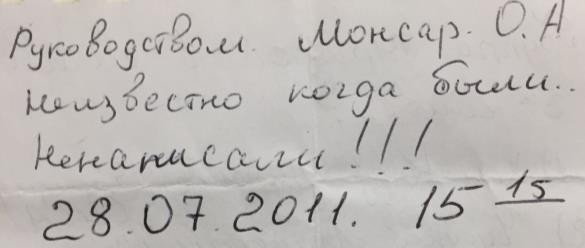 Руководством. Монсар. О.А
Неизвестно когда были..
Ненаписали!!!
28.07.2011. 15 15